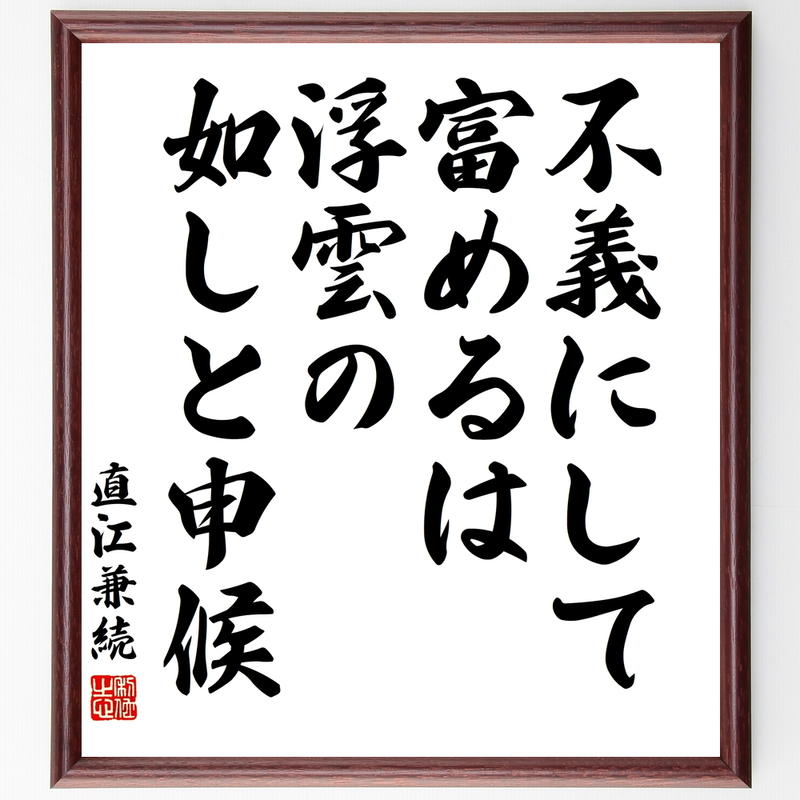 不義にして
富めるは
浮雲の
如しと申候
直江兼続